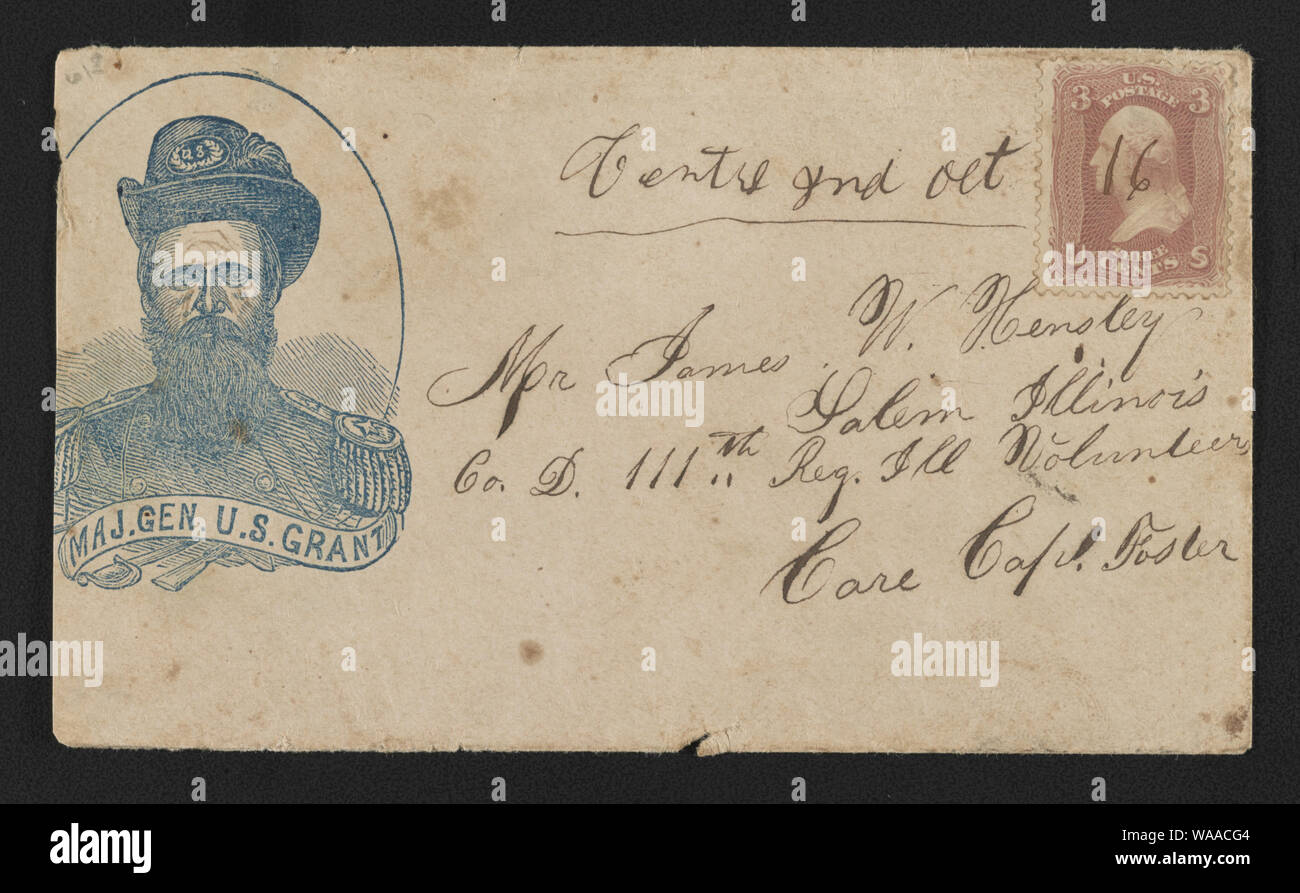 612
U.S.
POSTAGE
3 3
U.S
Centre Ind Oct 16
Mr James W. Hensley
Salem Illinois
Co. D. 111th Reg. Ill Volunteers
Care Capt. Foster
MAJ. GEN. U.S. GRANT
CENTS
alamy
Image ID: WAACG4
www.alamy.com